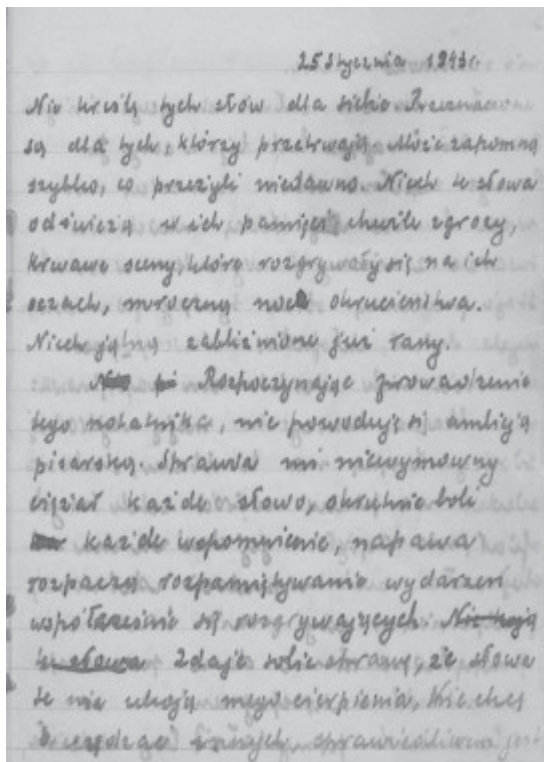 25 stycznia 1943 r.
Nie kreślę tych słów dla siebie. Przeznaczone
są dla tych, którzy przetrwają. Może zapomną
szybko, co przeżyli niedawno. Niech te słowa
odświeżą w ich pamięci chwile zgrozy,
krwawe sceny, które rozgrywały się na ich
oczach, mroczną noc okrucieństwa.
Niech zabliźnione już rany.
Rozpoczynając prowadzenie
tego notatnika, nie powoduję się ambicją
pisarską. Sprawia mi niewymowny
ciężar każde słowo, okrutnie boli
każde wspomnienie, napawa
rozpaczą rozpamiętywanie wydarzeń
współcześnie się rozgrywających. Nie koją
te słowa Zdaję sobie sprawę, że słowa
te nie ukoją mego cierpienia. Nie chcę
sprawiedliwem jest